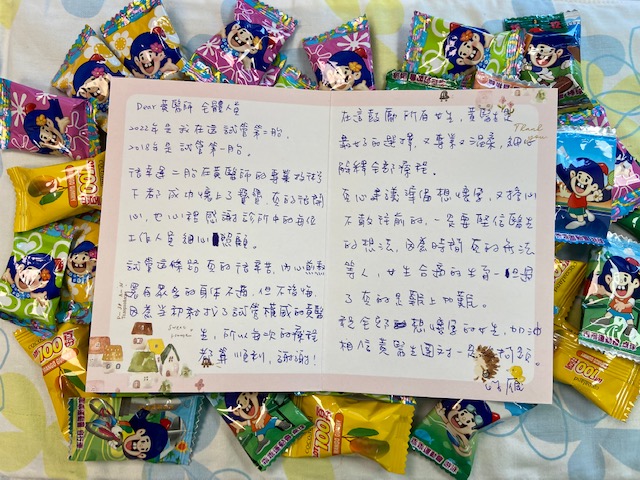 Dear 黃醫師 全體人員
2022年是我在這試管第二胎,
2018年是試管第一胎。
很幸運二胎在黃醫師的專業技術
下都成功懷上了寶寶, 真的很開
心, 也心裡感謝診所中的每位
工作人員細心照顧。
試管這條路真的很辛苦, 內心煎熬
還有很多的身体不適, 但不後悔
因為當初有找了試管權威的黃醫
生, 所以每次的療程
都算順利, 謝謝!
在這鼓勵所有女生, 黃醫生是
最好的選擇, 又專業又溫柔, 細心
解釋全部療程。
真心建議準備想懷孕, 又擔心
不敢往前的, 一定要堅信醫生
的想法, 因為時間真的無法
等人, 女生合適的生育一但過
了真的是難上加難。
祝全部想懷孕的女生, 加油
相信黃醫生團對一定可以。
Thank you
Sweet
100份
100份
100份